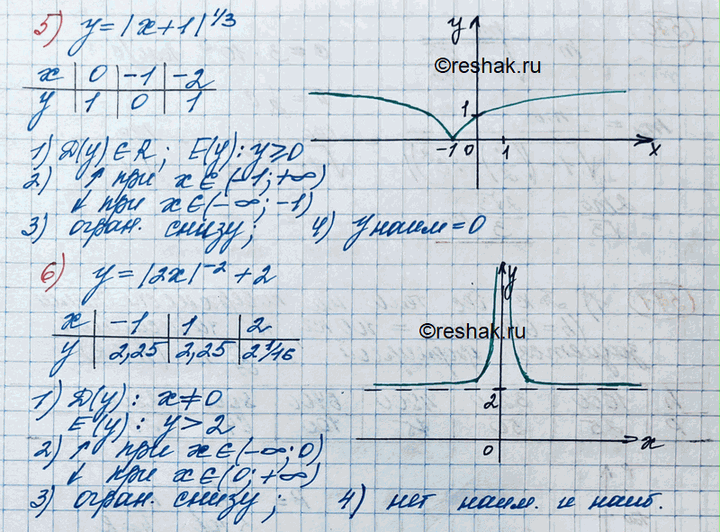 5) y = |x+1|^1/3
x | 0 | -1 | -2
y | 1 | 0 | 1
1) D(y) ∈ R; E(y): y ≥ 0
2) ↑ при x ∈ (-1; +∞)
↓ при x ∈ (-∞; -1)
3) огран. снизу; 4) y наим = 0
y
©reshak.ru
1
-1 0 1 x
6) y = |2x|^-2 + 2
x | -1 | 1 | 2
y | 2,25 | 2,25 | 2 1/16
1) D(y): x ≠ 0
E(y): y > 2
2) ↑ при x ∈ (-∞; 0)
↓ при x ∈ (0; +∞)
3) огран. снизу; 4) нет наим. и наиб.
y
©reshak.ru
2
0 x